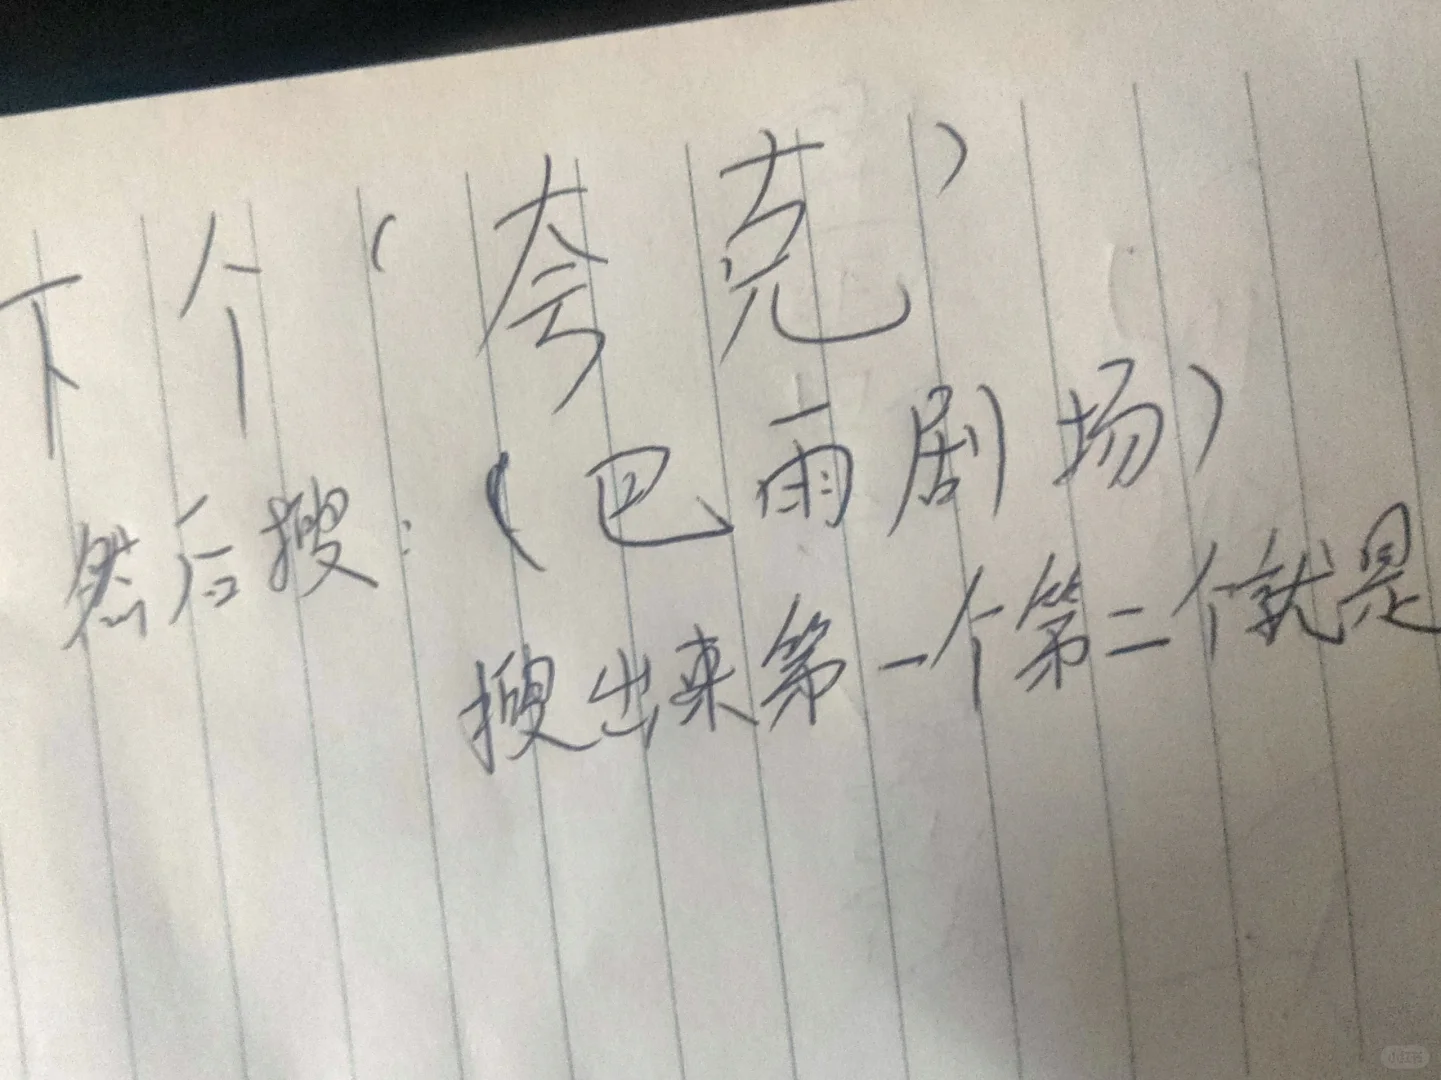 下个(夸克)
然后搜:(巴雨剧场)
搜出来第一个第二个就是